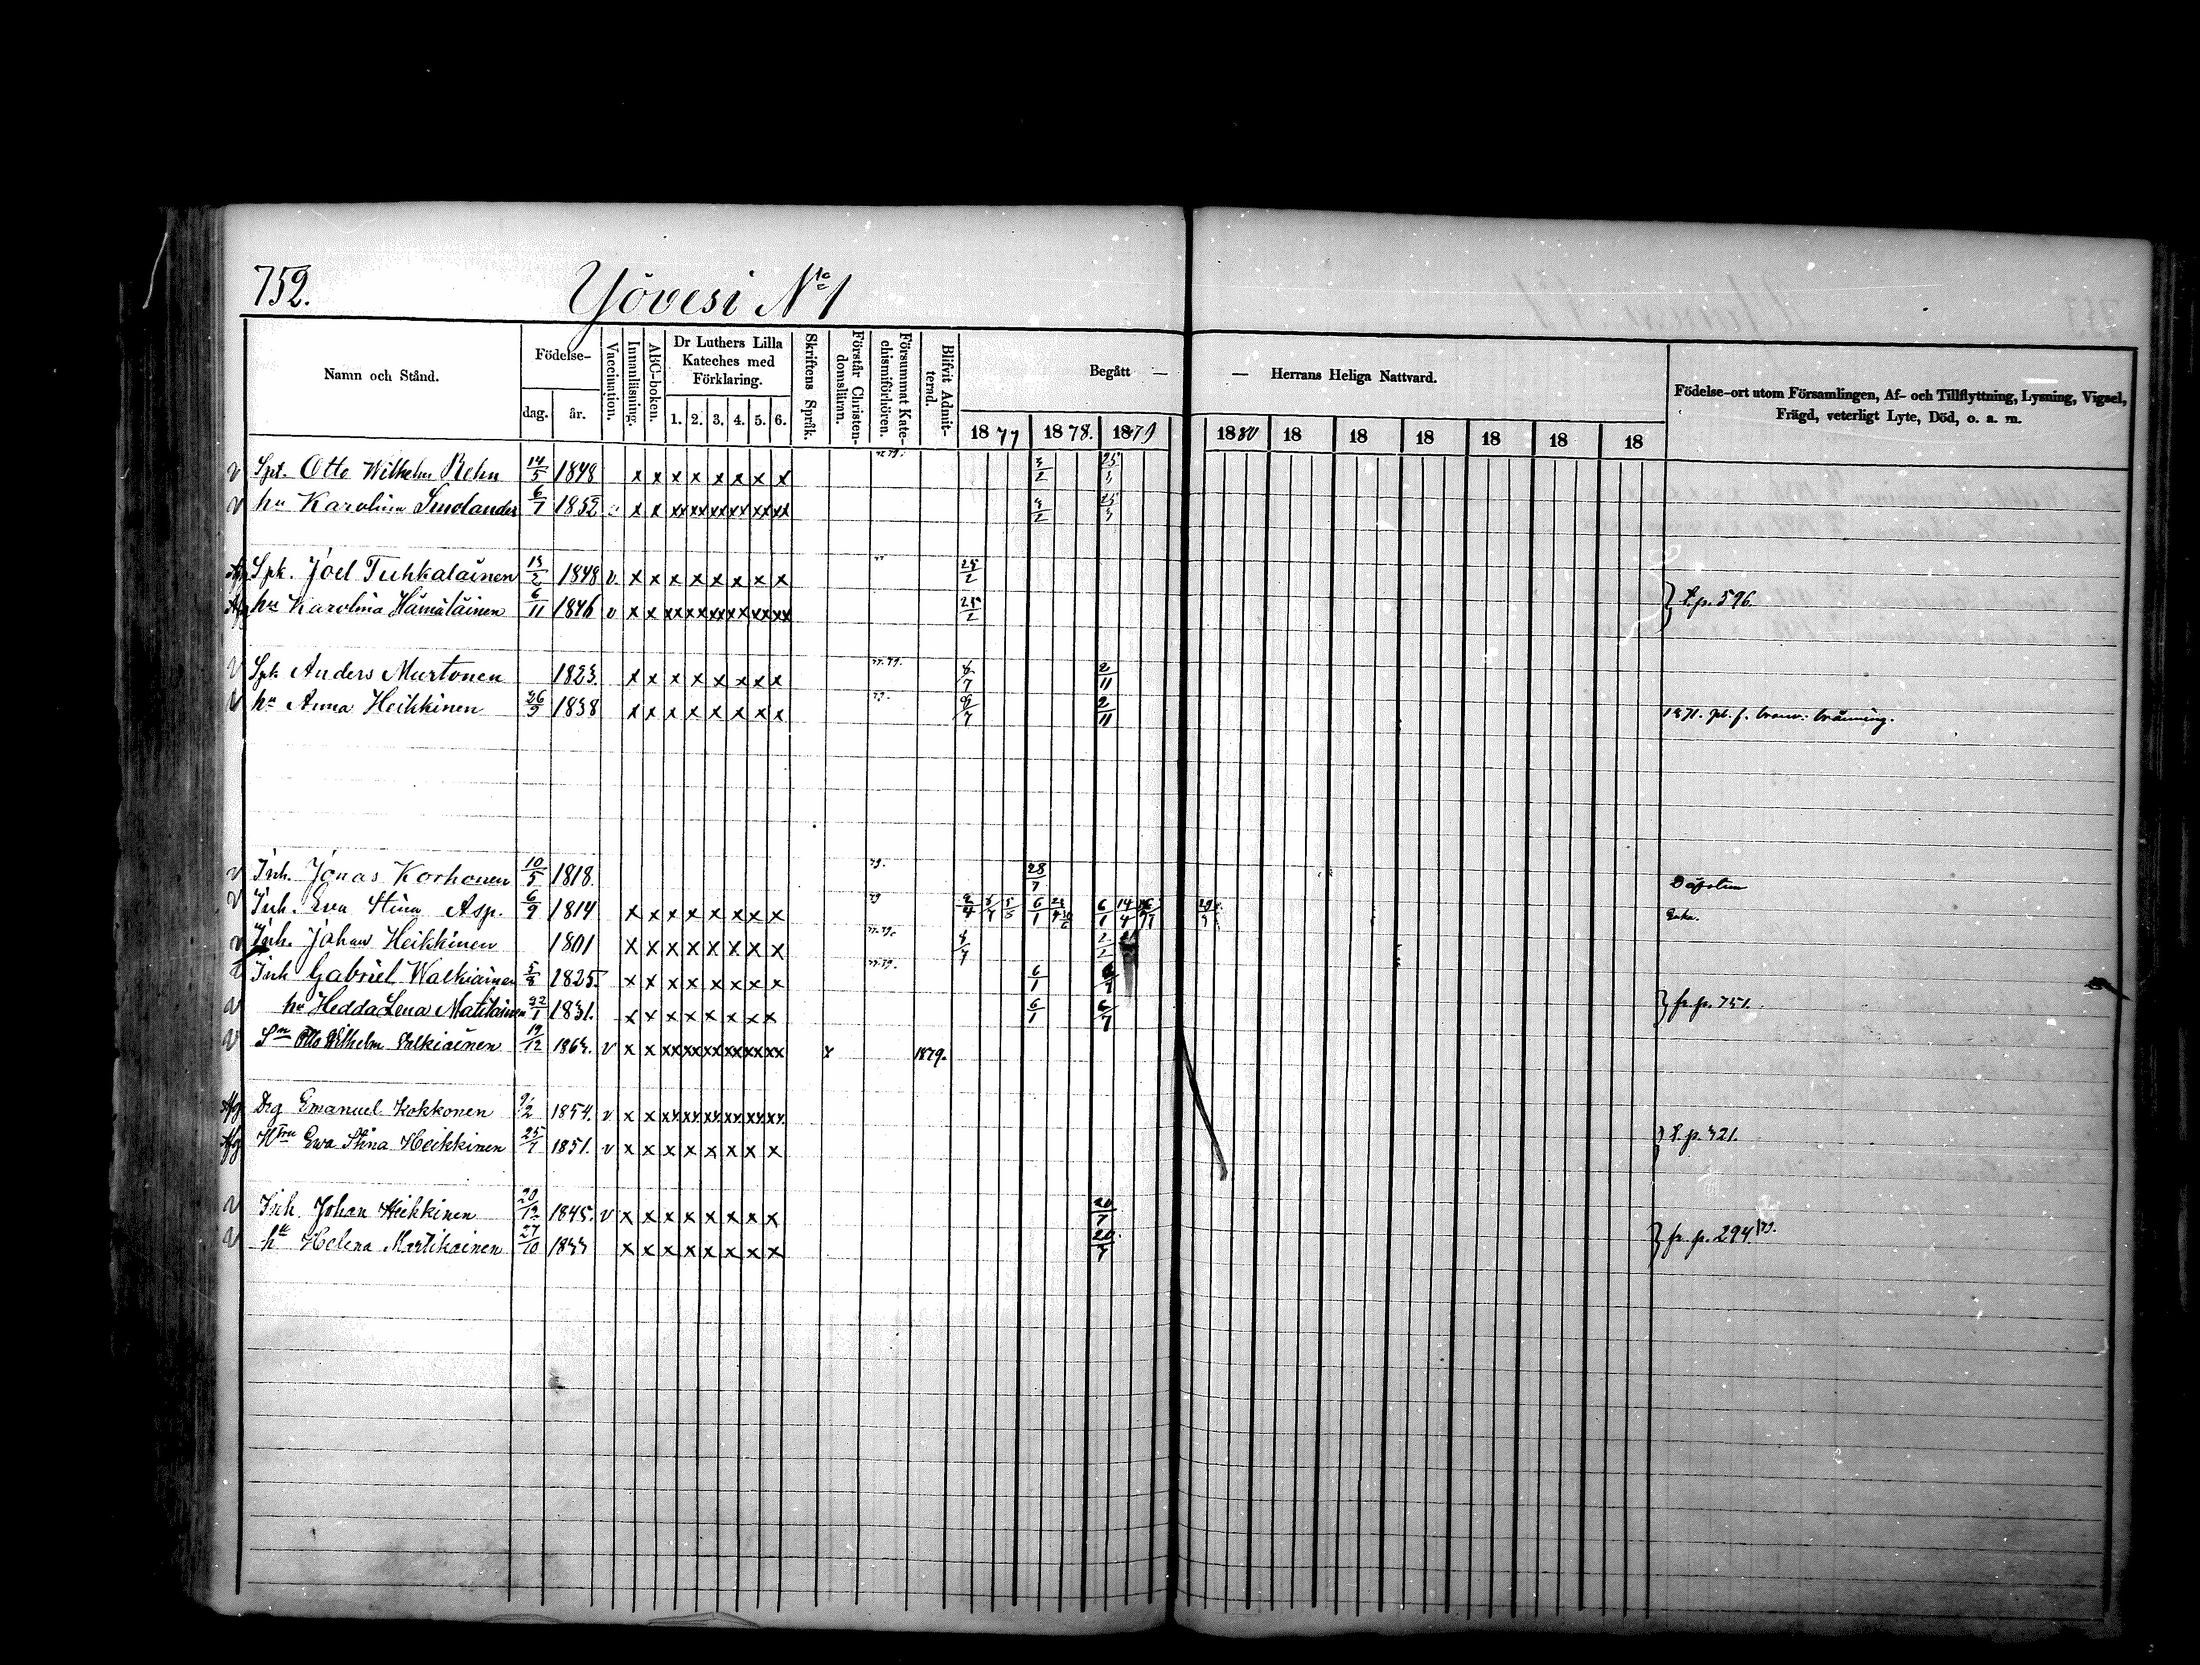 752. Yövesi No 1
Namn och Stånd. Födelse- dag. år. Vaccination. Innanläsning. ABC-boken. Dr Luthers Lilla Kateches med Förklaring. 1. 2. 3. 4. 5. 6. Skriftens Språk. Förstår Christendomsläran. Försummat Katechismiförhören. Blifvit Admitterad. Begått — — Herrans Heliga Nattvard. Födelse-ort utom Församlingen, Af- och Tillflyttning, Lysning, Vigsel, Frägd, veterligt Lyte, Död, o. a. m.
1877 1878. 1879 1880 18 18 18 18 18 18
v Spt. Otto Wilhelm Rehn 14/5 1848 x x x x x x x x 3/2
v hu Karolina Smolander 6/7 1852 x x xx xx xx xx xx xx 3/2
Spk. Joel Tuhkalainen 13/2 1848 v. x x x x x x x x 25/2
hu Karolina Hämäläinen 6/11 1846 v x x xx xx xx xx xx xx 25/2 } t.p. 596.
v Spk Anders Murtonen 1823. x x x x x x x x 77. 79. 2/11
v hu Anna Heikkinen 26/9 1838 x x x x x x x x 79. 2/11 1871. pl. f. bränning.
v Inh. Jonas Korhonen 10/5 1818. 79. 28/7 Döfstum
v Inh. Eva Stina Asp. 6/9 1814 x x x x x x x x 79 6/1 6/1 14/4 Enka.
v Inh. Johan Heikkinen 1801 x x x x x x x x 77. 79.
v Inh Gabriel Walkiainen 5/8 1825. x x x x x x x x 77. 79. 6/1 6/7
v hu Hedda Lena Matilainen 22/1 1831. x x x x x x x x 6/1 6/7 } fr. p. 751.
v Sn Otto Wilhelm Valkiainen 19/12 1863. v x x xx xx xx xx xx xx x 1879.
Afg Drg Emanuel Kokkonen 9/2 1854. v x x xx xx xx xx xx xx
Afg Hfru Ewa Stina Heikkinen 25/7 1851. v x x x x x x x x } t. p. 321.
v Inh. Johan Heikkinen 20/12 1845. v x x x x x x x x 20/7
v hu Helena Martikainen 27/10 1844 x x x x x x x x 20/7 } fr. p. 294. 79.